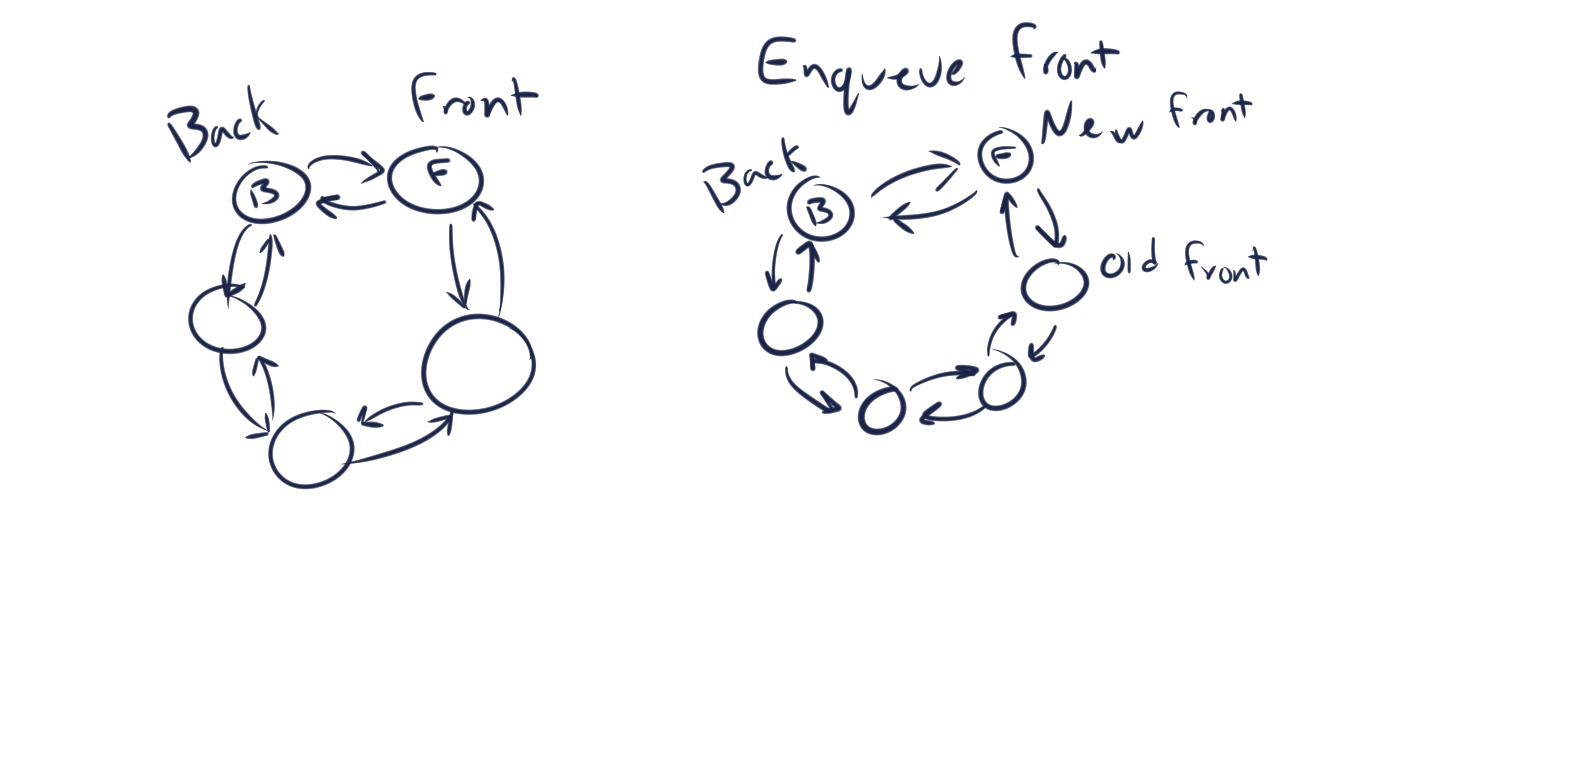 Back
Front
B
F
Enqueue front
New front
Back
F
B
Old front